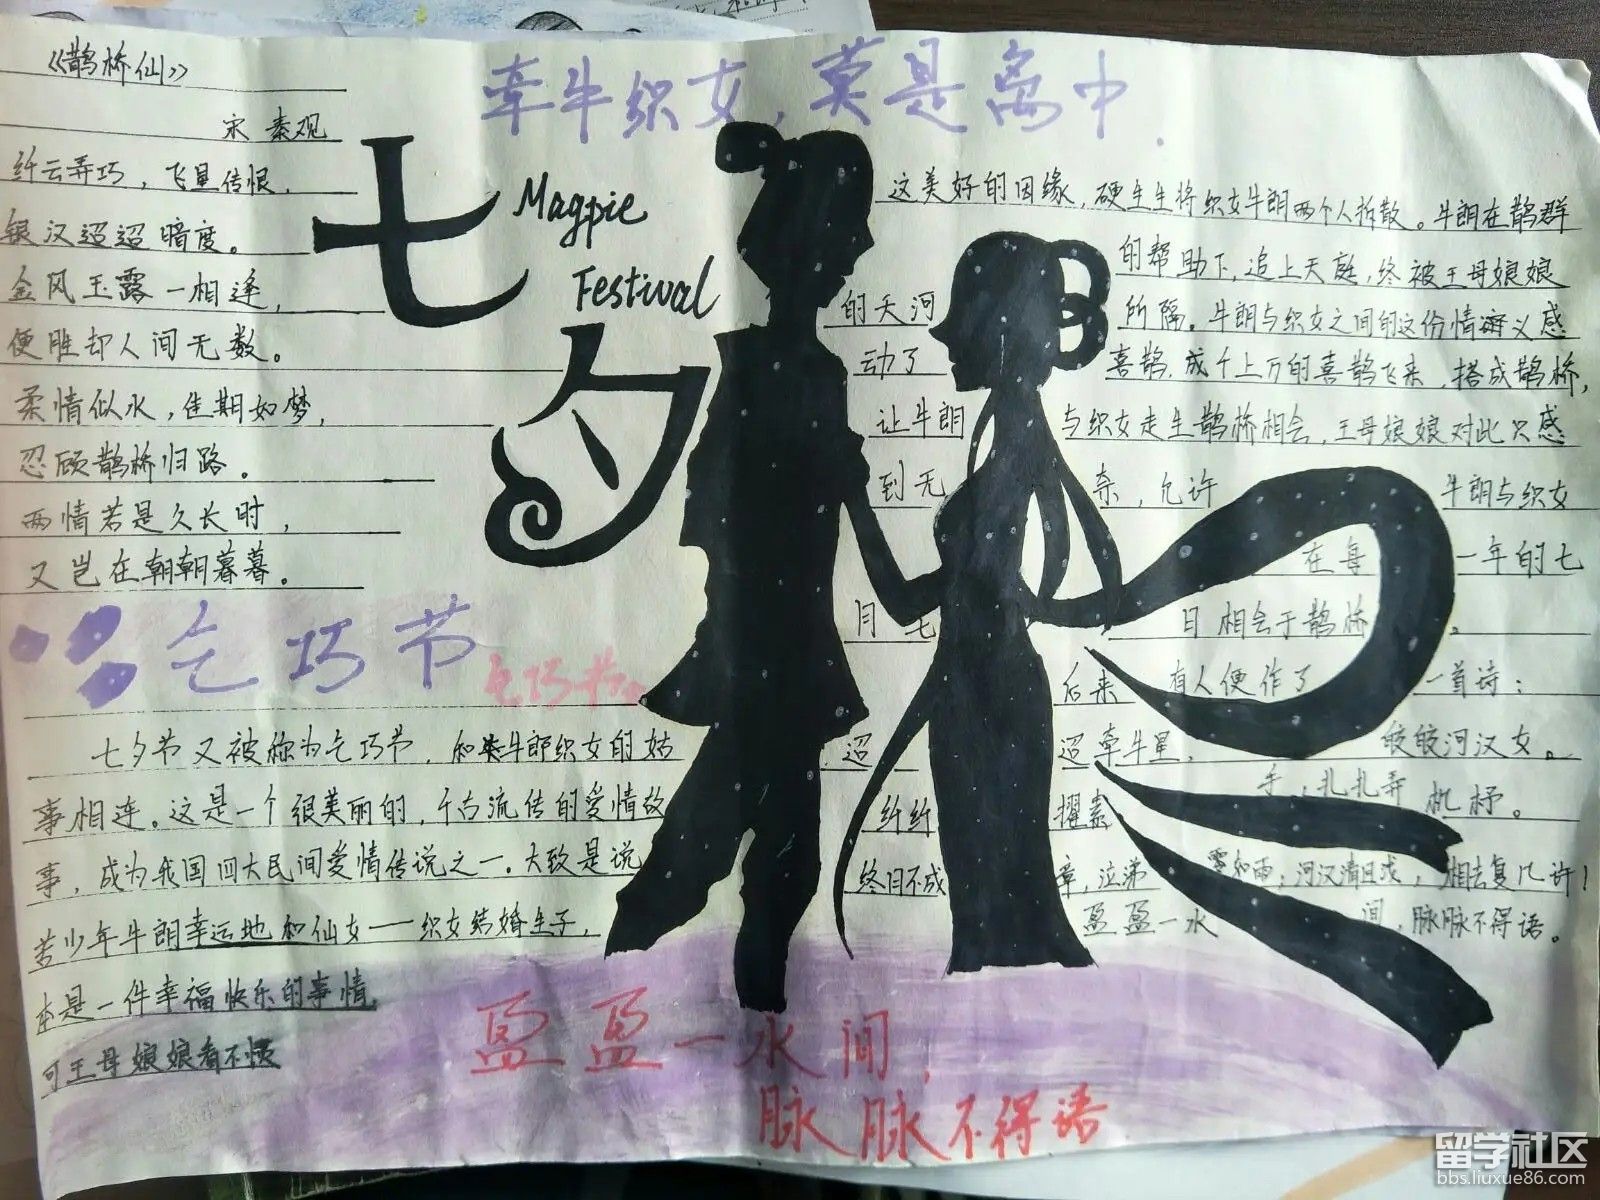 《鹊桥仙》
宋 秦观
纤云弄巧，飞星传恨，
银汉迢迢暗度。
金风玉露一相逢，
便胜却人间无数。
柔情似水，佳期如梦，
忍顾鹊桥归路。
两情若是久长时，
又岂在朝朝暮暮。
牵牛织女，莫是离中．
七夕
Magpie
Festival
乞巧节
乞巧节
七夕节又被称为乞巧节，和牛郎织女的故
事相连。这是一个很美丽的，千古流传的爱情故
事，成为我国四大民间爱情传说之一。大致是说
苦少年牛朗幸运地和仙女——织女结婚生子，
本是一件幸福快乐的事情
可王母娘娘看不惯
这美好的因缘，硬生生将织女牛朗两个人拆散。牛朗在鹊群
的帮助下，追上天庭，终被王母娘娘
的天河 所隔。牛朗与织女之间的这份情义感
动了 喜鹊，成千上万的喜鹊飞来，搭成鹊桥，
让牛朗 与织女走生鹊桥相会，王母娘娘对此只感
到无 奈，允许 牛朗与织女
在每 一年的七
月七 日相会于鹊桥。
后来 有人便作了 一首诗：
迢 迢牵牛星， 皎皎河汉女。
纤纤 擢素 手，扎扎弄 机杼。
终日不成 章，泣涕 零如雨；河汉清且浅，相去复几许！
盈盈一水 间，脉脉不得语。
盈盈一水间，
脉脉不得语
留学社区
bbs.liuxue86.com